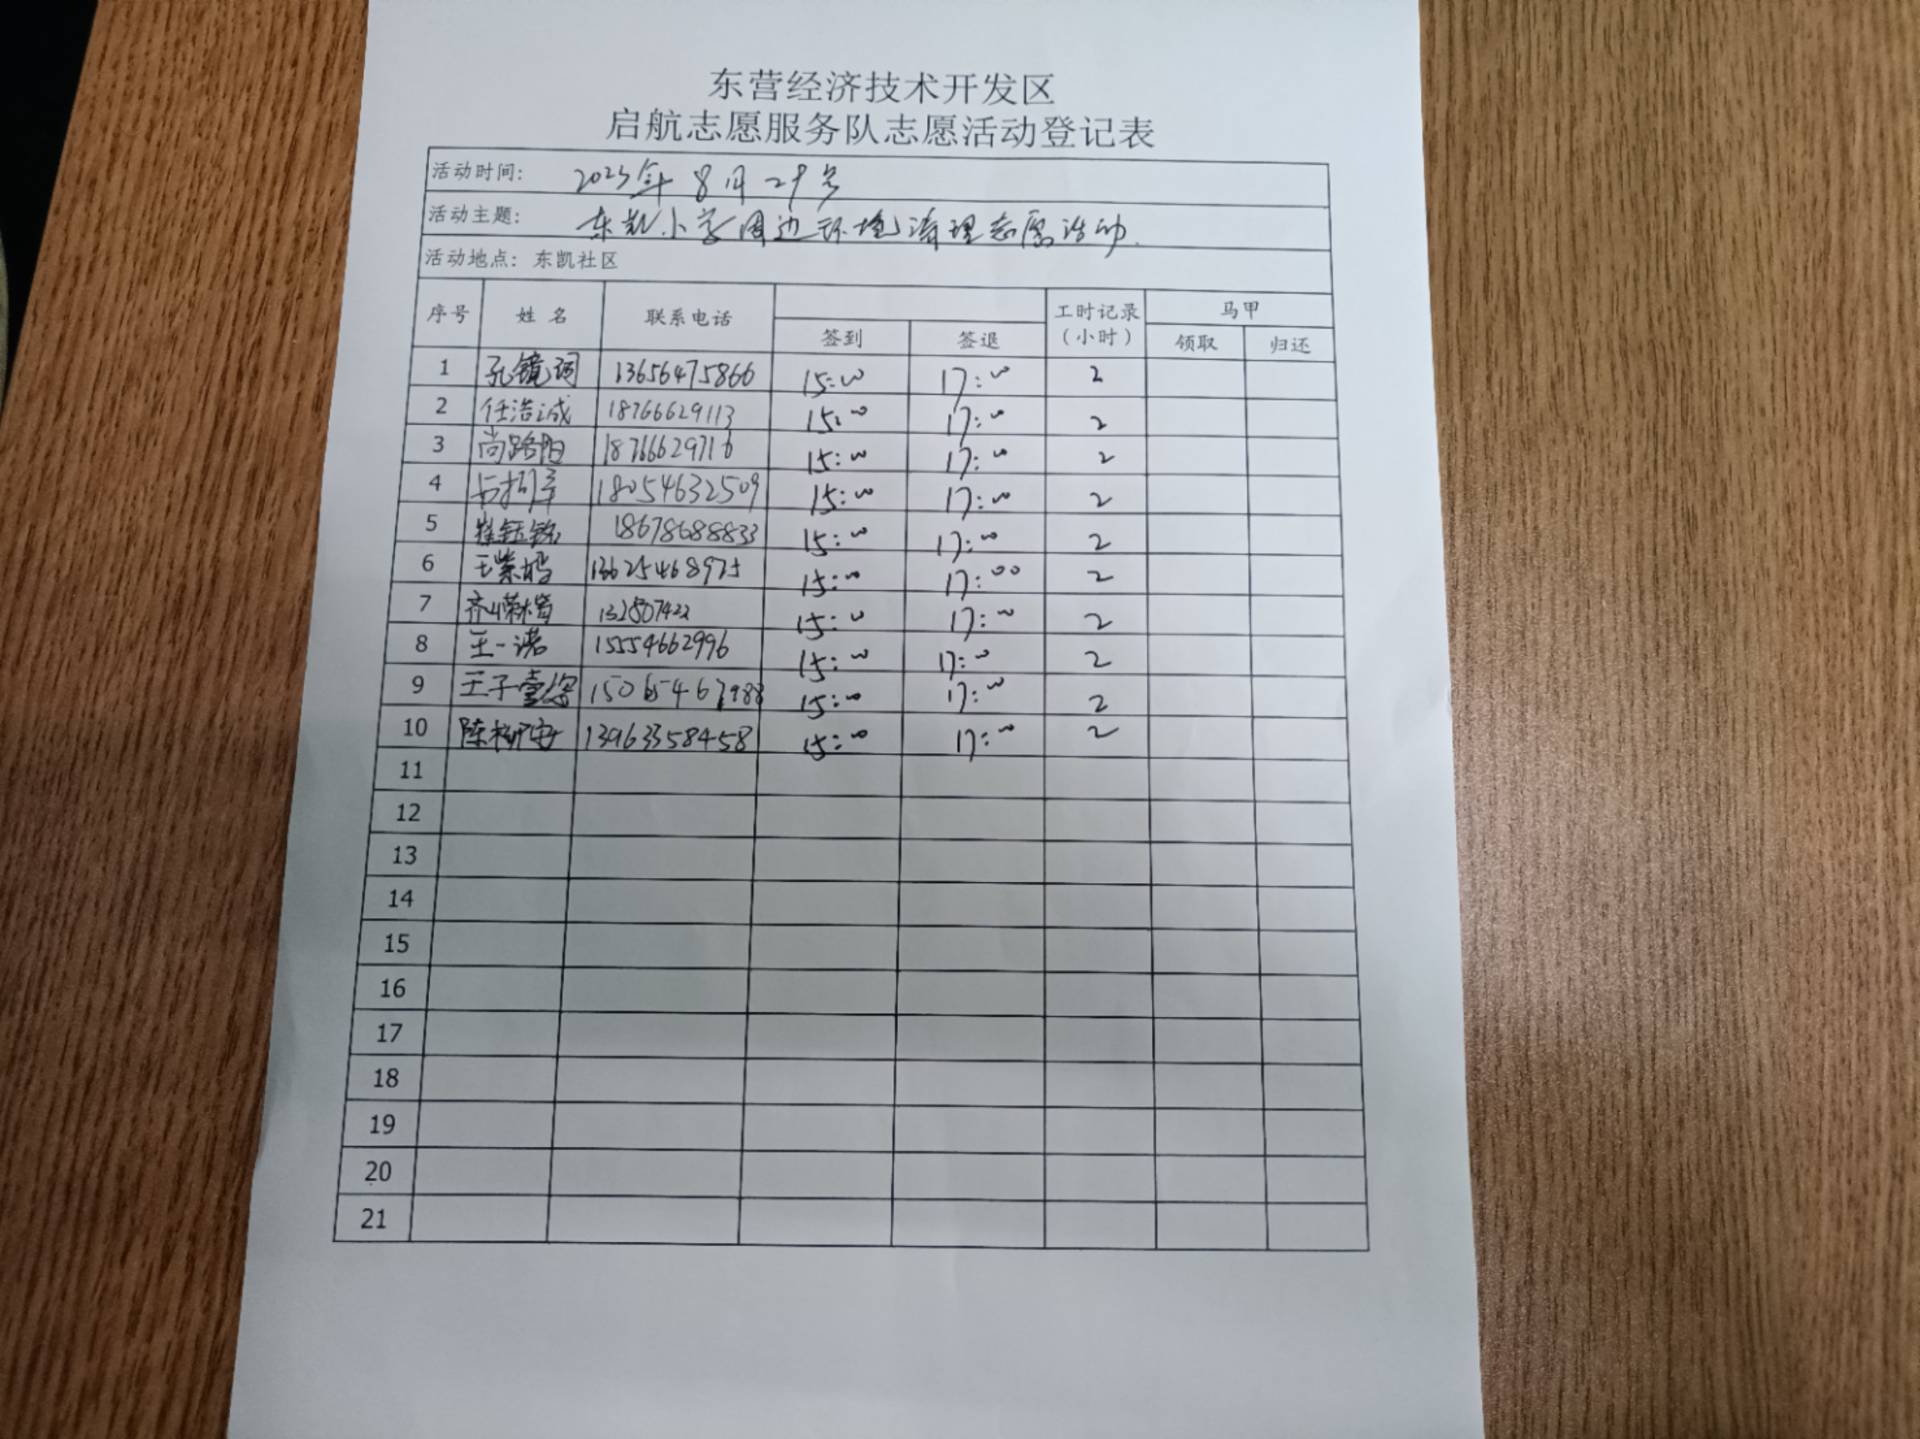 东营经济技术开发区
启航志愿服务队志愿活动登记表
活动时间: 8月29号
活动主题: 东凯小学周边环境清理志愿活动.
活动地点: 东凯社区
序号 姓名 联系电话 签到 签退 工时记录(小时) 马甲 领取 归还
1 孔镜词 13656475866 15:00 17:00 2
2 任浩诚 18766629113 15:00 17:00 2
3 尚路阳 18766629716 15:00 17:00 2
4 18054632509 15:00 17:00 2
5 崔钰铭 18678688833 15:00 17:00 2
6 13625468975 15:00 17:00 2
7 132807422 15:00 17:00 2
8 王一诺 15554662996 15:00 17:00 2
9 15:00 17:00 2
10 13963358458 15:00 17:00 2
11
12
13
14
15
16
17
18
19
20
21